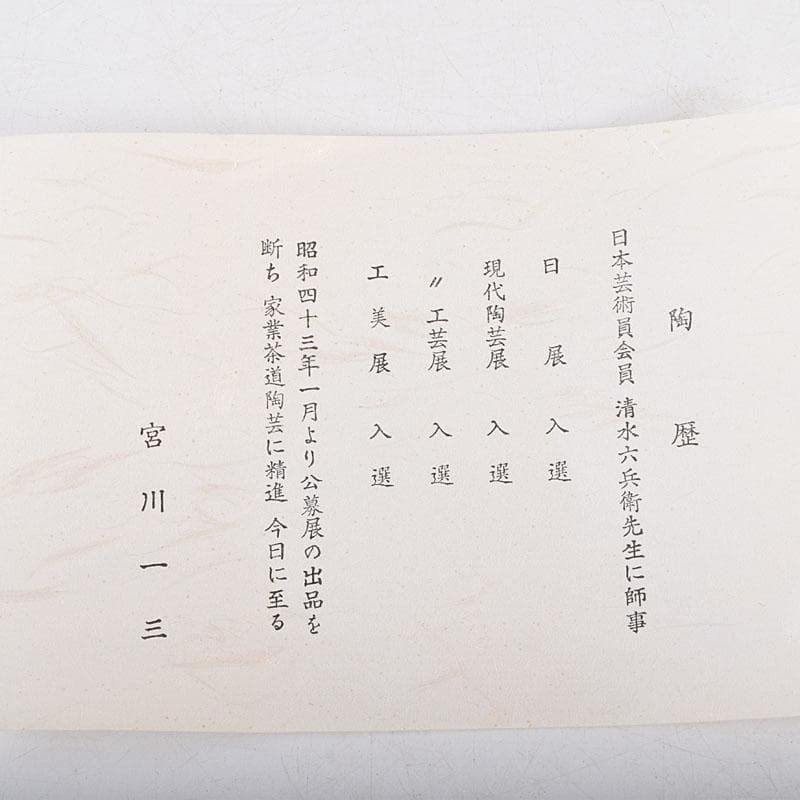 陶歴
日本芸術員会員 清水六兵衛先生に師事
日展入選
現代陶芸展入選
〃工芸展入選
工美展入選
昭和四十三年一月より公募展の出品を
断ち 家業茶道陶芸に精進 今日に至る
宮川一三